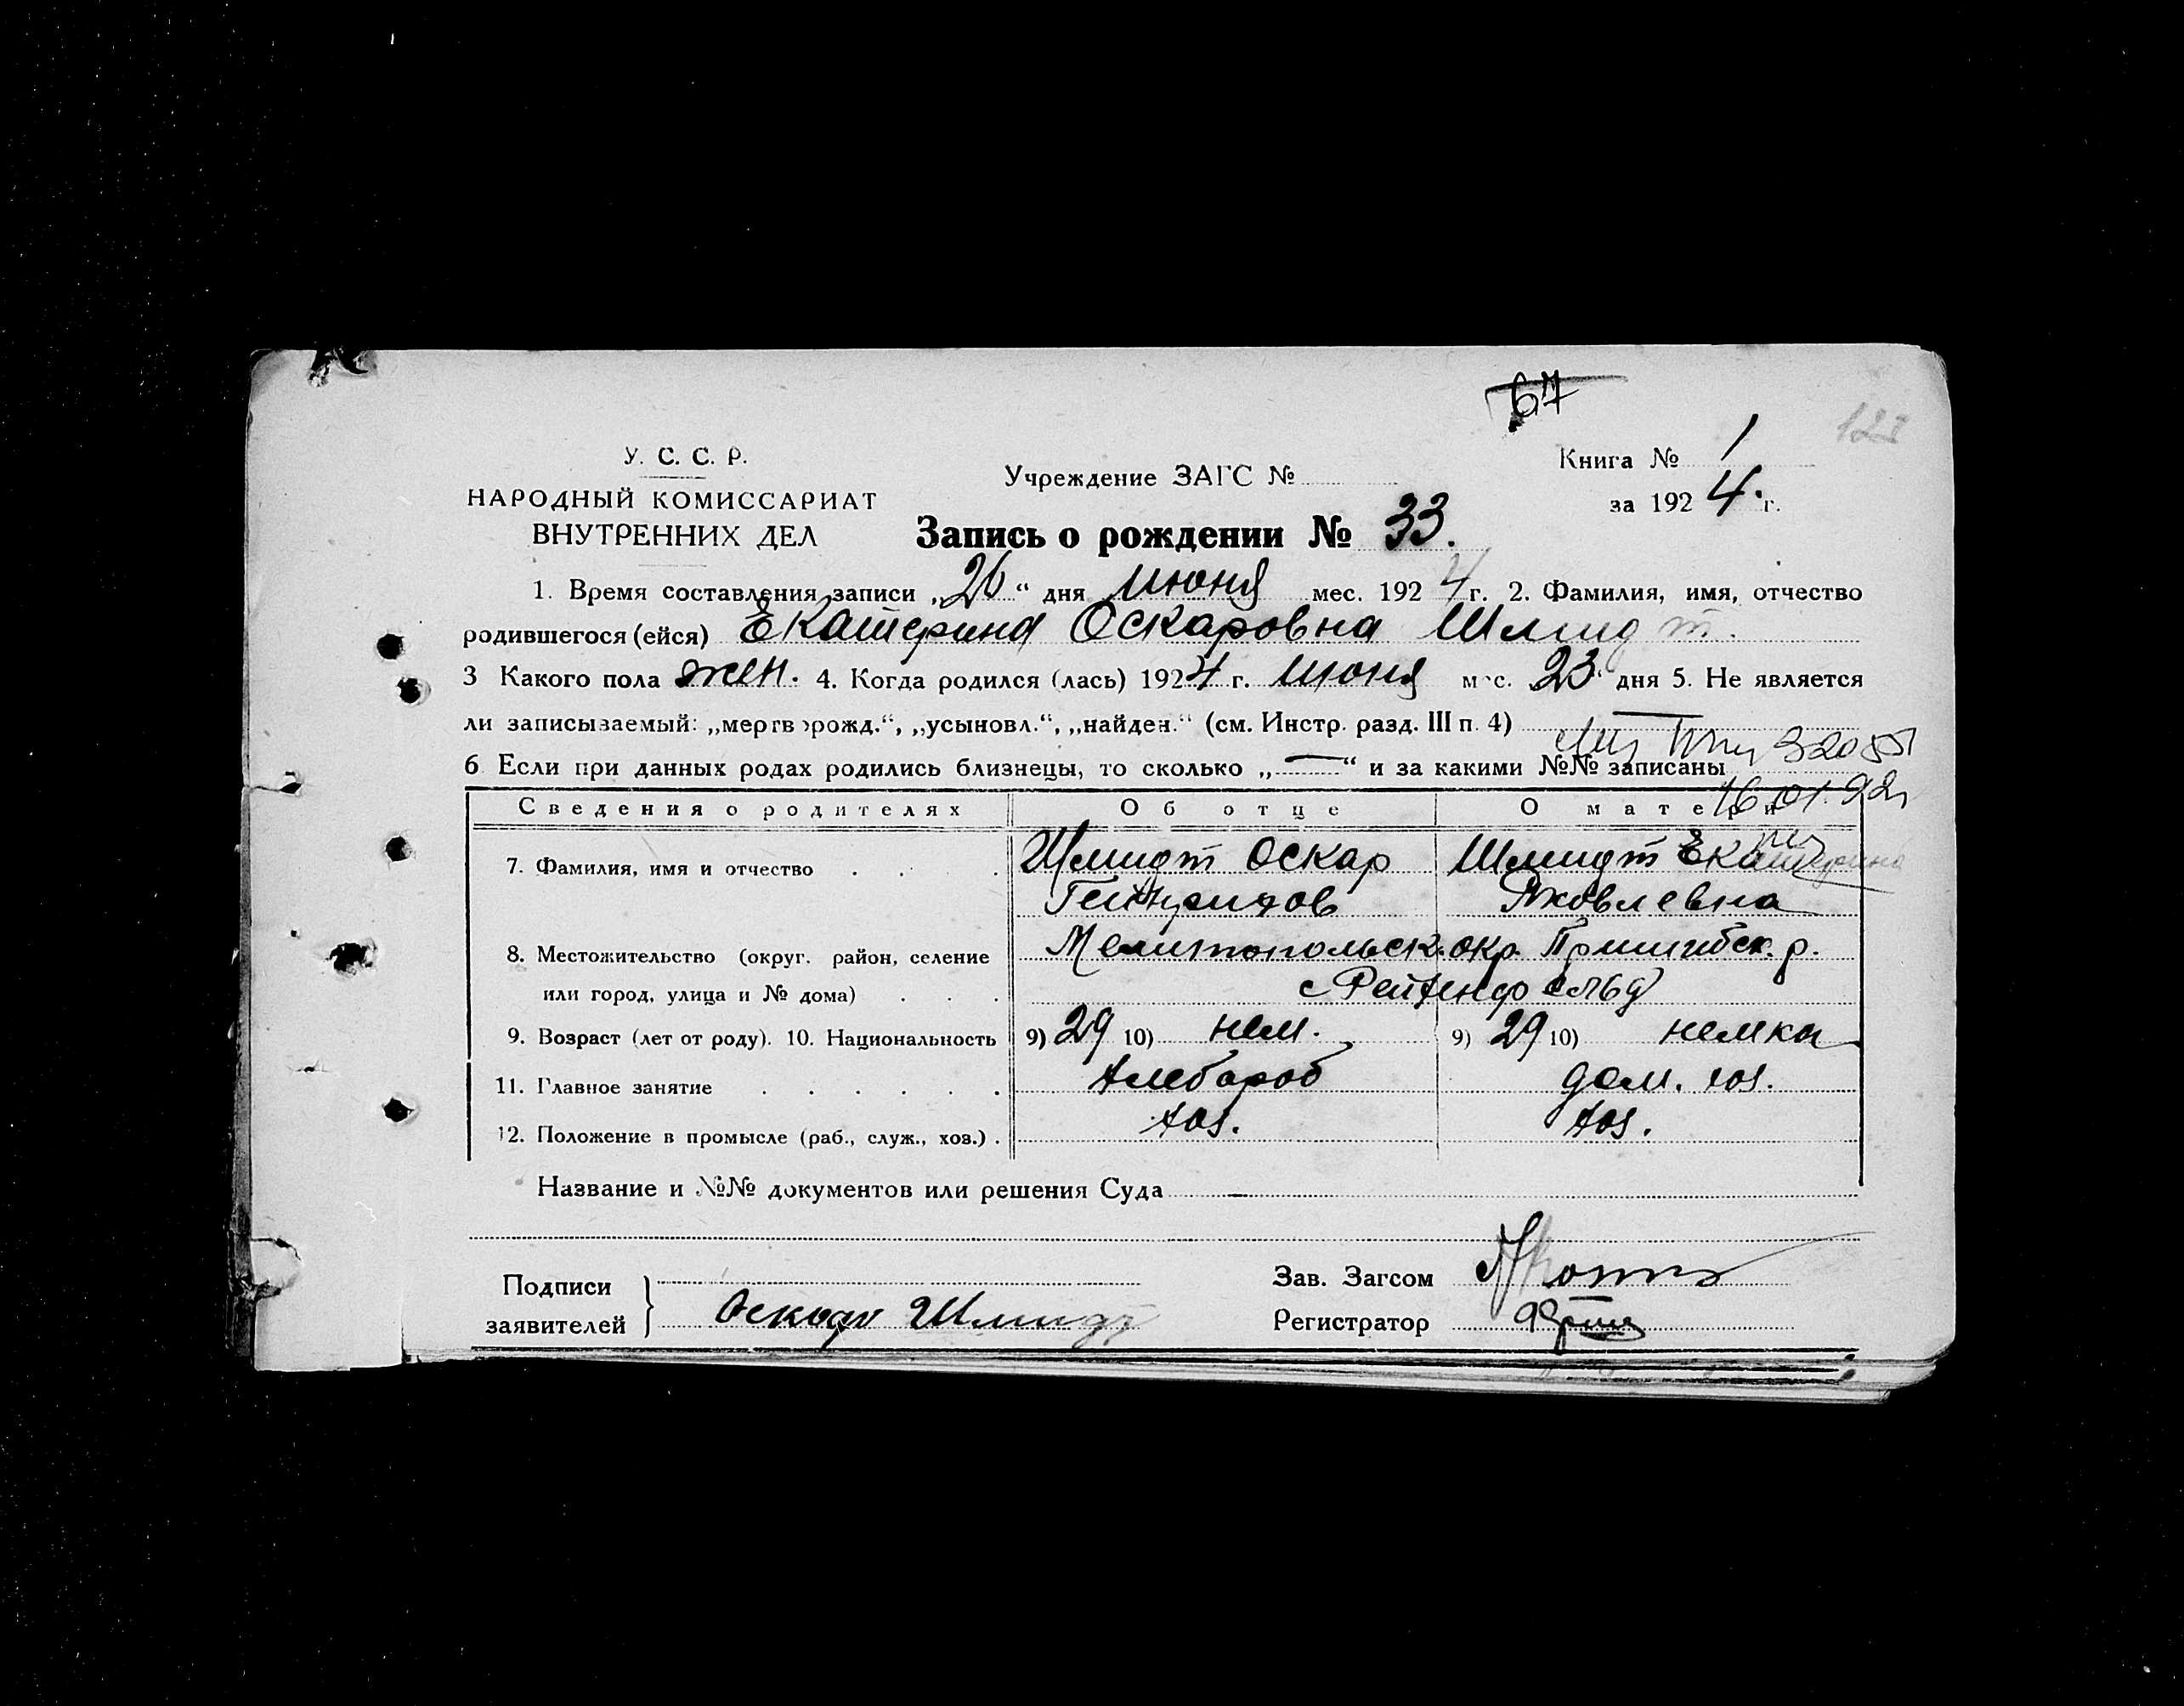 67
122
У. С. С. Р.
НАРОДНЫЙ КОМИССАРИАТ
ВНУТРЕННИХ ДЕЛ
Учреждение ЗАГС №
Книга № 1
за 1924 г.
Запись о рождении № 33.
1. Время составления записи „26“ дня июня мес. 1924 г. 2. Фамилия, имя, отчество
родившегося (ейся) Екатерина Оскаровна Шмидт.
3 Какого пола жен. 4. Когда родился (лась) 1924 г. июня мес. 23 дня 5. Не является
ли записываемый: „мертворожд.“, „усыновл.“, „найден.“ (см. Инстр. разд. III п. 4) —
6 Если при данных родах родились близнецы, то сколько „—“ и за какими №№ записаны
16.01.92
Сведения о родителях Об отце О матери
7. Фамилия, имя и отчество Шмидт Оскар Шмидт Екатерина
Гейнрихов Яковлевна
8. Местожительство (округ. район, селение Мелитопольск. окр. Пришибск. р.
или город, улица и № дома) с Рейхенфельд
9. Возраст (лет от роду). 10. Национальность 9) 29 10) нем. 9) 29 10) немка
11. Главное занятие Хлебороб дом. хоз.
12. Положение в промысле (раб., служ., хоз.) . хоз. хоз.
Название и №№ документов или решения Суда —
Подписи
заявителей
Оскар Шмидт
Зав. Загсом
Регистратор